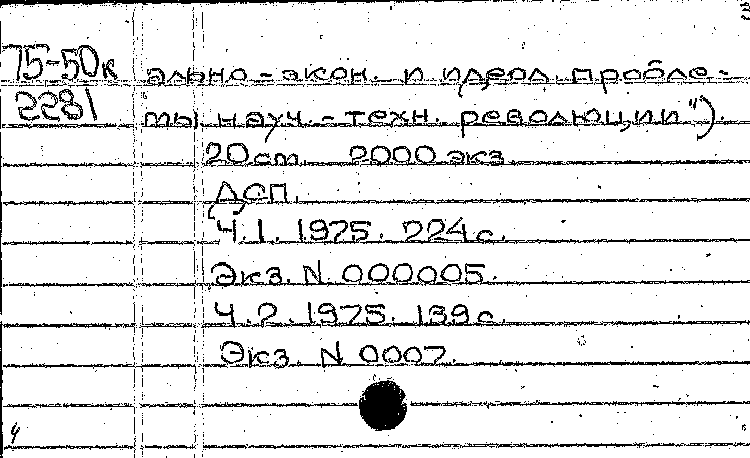 75-50к ально-экон. и идеол. пробле-
2281 мы науч.-техн. революции").
20 cm. 2000 экз.
ДСП.
Ч.1. 1975. 224 с.
Экз. N 000005.
Ч.2. 1975. 139 с.
Экз. N 0007.
4